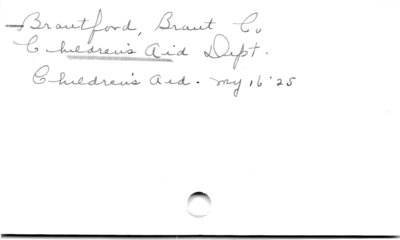 Brantford, Brant Co
Children's Aid Dept.
Children's Aid. My 16 '25